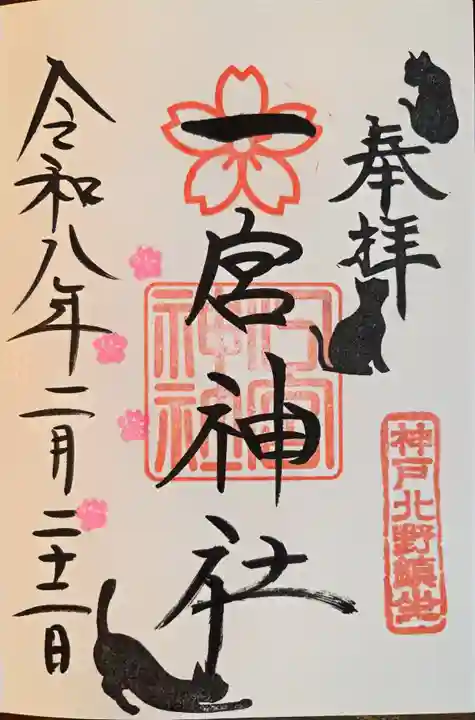 奉拝
神戸北野鎮坐
一宮神社
神社
令和八年二月二十二日